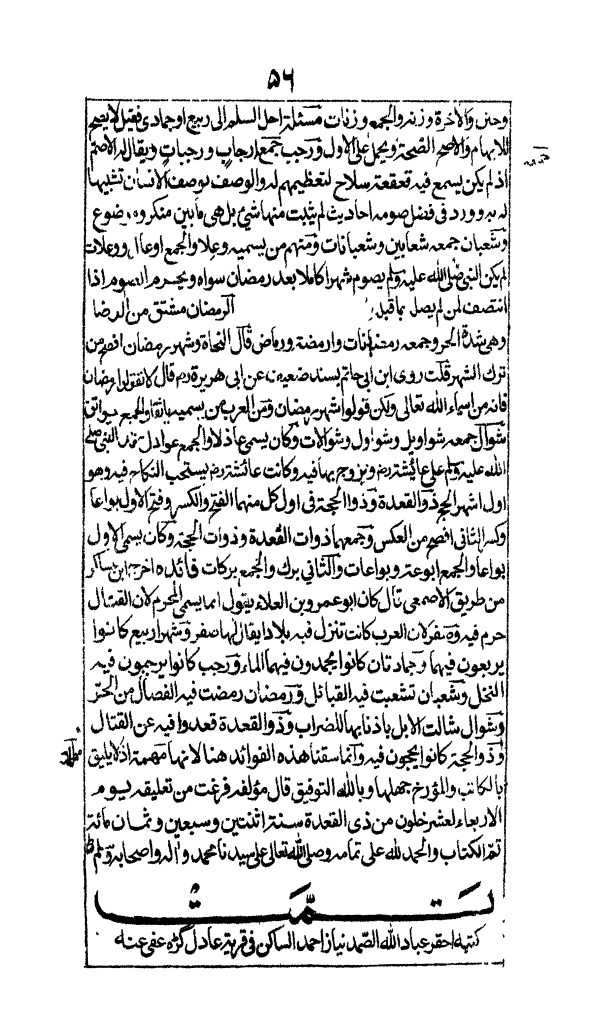 ٥٦
وحنن والآخرة وزبنه والجمع وزنات مسئلة اجل السلم الى ربيع اوجمادى فقيل لا يصح
للابهام والاصح الصحة ويحمل على الاول ورجب جمعه ارجاب ورجبات ويقال له الاصم
اذ لم يكن يسمع فيه قعقعة سلاح لتعظيمهم له والوصف بوصف الانسان تشبيها
له به وورد فى فضل صومه احاديث لم يثبت منها شئ بل هى ما بين منكر وموضوع
وشعبان جمعه شعابين وشعبانات ومنهم من يسميه وعلا والجمع اوعال ووعلات
لم يكن النبى صلى الله عليه وسلم يصوم شهرا كاملا بعد رمضان سواه ويحرم الصوم اذا
انتصف لمن لم يصل بما قبله الرمضان مشتق من الرمضا
وهى شدة الحر وجمعه رمضانات وارمضة ورماض قال النحاة وشهر رمضان افصح من
ترك الشهر قلت روى ابن ابى حاتم بسند ضعيف عن ابى هريرة رض قال لا تقولوا رمضان
فانه من اسماء الله تعالى ولكن قولوا شهر رمضان ومن العرب من يسميه ناتقا والجمع نواتق
شوال جمعه شواويل وشواول وشوالات وكان يسمى عاذلا والجمع عواذل عقد النبى صلى
الله عليه وسلم على عائشة رض وتزوج بها فيه وكانت عائشة رض يستحب النكاح فيه وهو
اول اشهر الحج ذو القعدة وذو الحجة فى اول كل منهما الفتح والكسر وفتح الاول
وكسر الثانى افصح من العكس وجمعهما ذوات القعدة وذوات الحجة وكان يسمى الاول
بواعا والجمع ابوعة وبواعات والثانى برك والجمع بركات فائده اخرج ابن عساكر
من طريق الاصمعى قال كان ابو عمرو بن العلاء يقول انما يسمى المحرم لان القتال
حرم فيه وصفر لان العرب كانت تنزل فيه بلادا يقال لها صفر وشهرا ربيع كانوا
يربعون فيهما وجمادتان كانوا يجمدون فيهما الماء ورجب كانوا يرجبون فيه
النخل وشعبان تشعبت فيه القبائل ورمضان رمضت فيه الفصال من الحر
وشوال شالت الابل باذنابها للضراب وذو القعدة قعدوا فيه عن القتال
وذو الحجة كانوا يحجون فيه وانما سقنا هذه الفوائد هنا لانها مهمة اذ لا يليق
بالكاتب والمؤرخ جهلها وبالله التوفيق قال مؤلفه فرغت من تعليقه يوم
الاربعاء لعشر خلون من ذى القعدة سنة اثنتين وسبعين وثمان مائة
تم الكتاب والحمد لله على تمامه وصلى الله تعالى على سيدنا محمد وآله واصحابه وسلم
تمت
كتبه احقر عباد الله الصمد نياز احمد الساكن فى قرية عادل گڑه عفى عنه